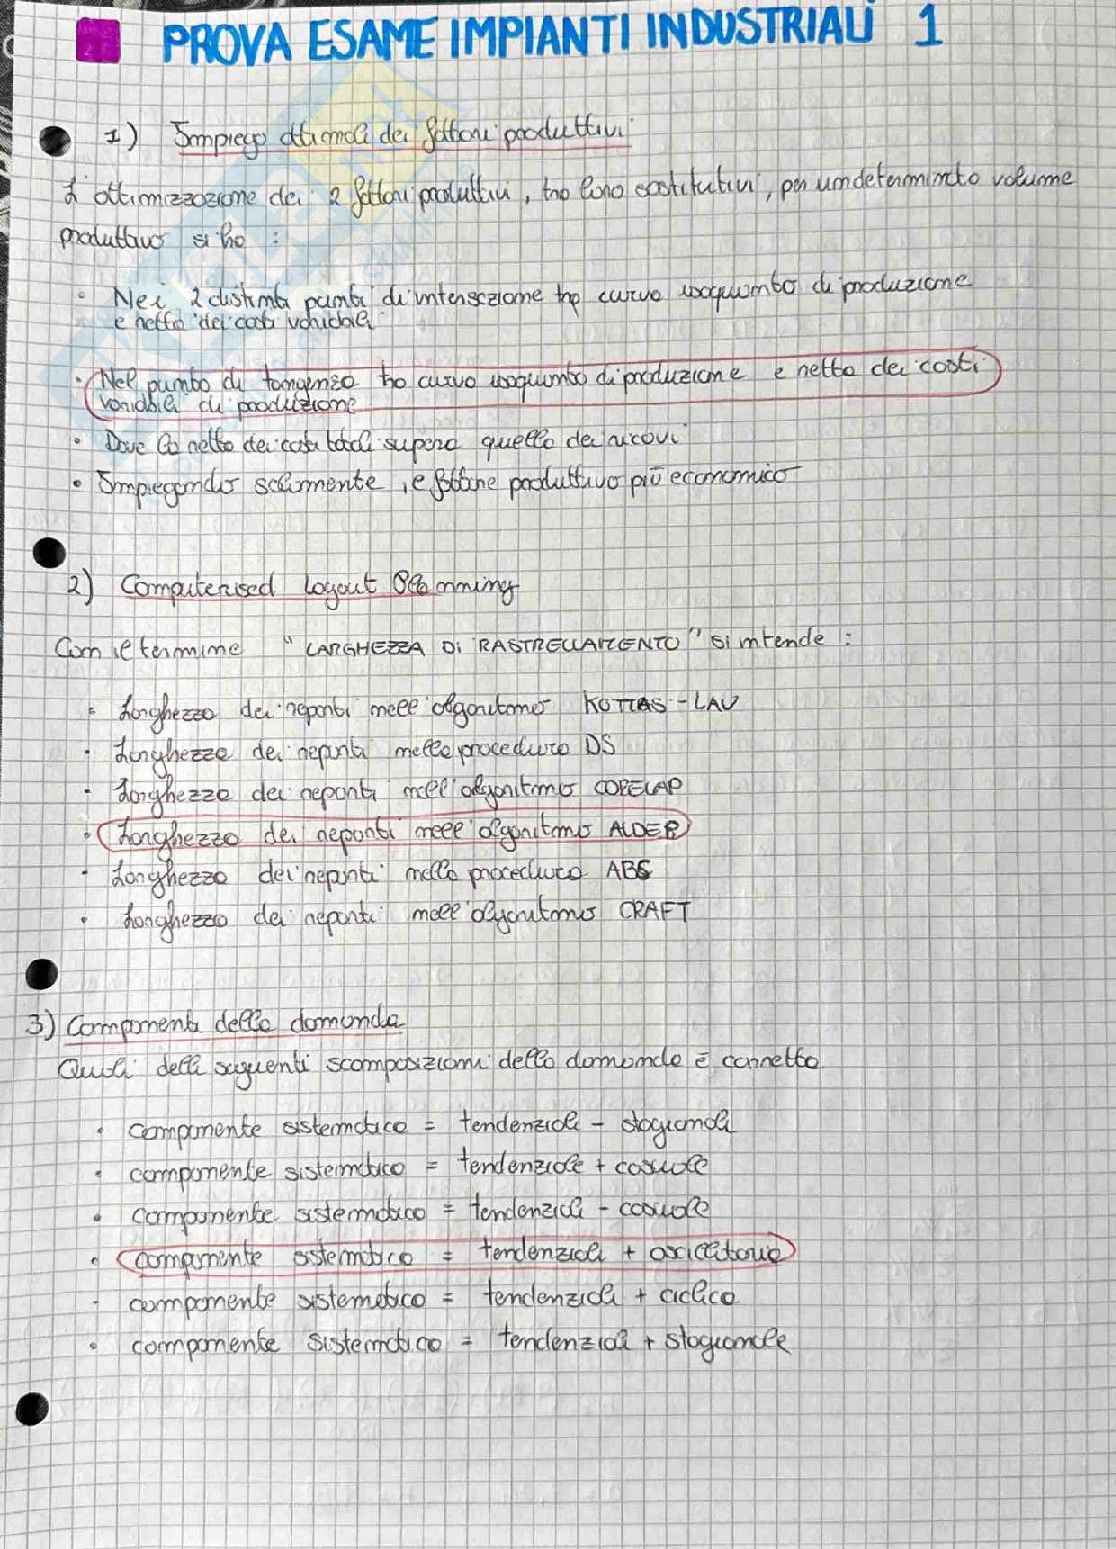 PROVA ESAME IMPIANTI INDUSTRIALI 1
1) Impiego ottimale dei fattori produttivi
L'ottimizzazione dei 2 fattori produttivi, tra loro sostitutivi, per un determinato volume
produttivo si ha :
• Nei 2 distinti punti di intersezione tra curva isoquanto di produzione
e retta dei costi variabili
• Nel punto di tangenza tra curva isoquanto di produzione e retta dei costi
variabili di produzione
• Dove la retta dei costi totali supera quella dei ricavi
• Impiegando solamente il fattore produttivo più economico
2) Computerised Layout Planning
Con il termine "LARGHEZZA DI RASTRELLAMENTO" si intende :
• Larghezza dei reparti nell'algoritmo KOTTAS - LAU
• Larghezza dei reparti nella procedura DS
• Larghezza dei reparti nell'algoritmo CORELAP
• Larghezza dei reparti nell'algoritmo ALDEP
• Larghezza dei reparti nella procedura ABS
• Larghezza dei reparti nell'algoritmo CRAFT
3) Componenti della domanda
Quali delle seguenti scomposizioni della domanda è corretta
• componente sistematica = tendenziale - stagionale
• componente sistematica = tendenziale + casuale
• componente sistematica = tendenziale - casuale
• componente sistematica = tendenziale + oscillatoria
• componente sistematica = tendenziale + ciclica
• componente sistematica = tendenziale + stagionale